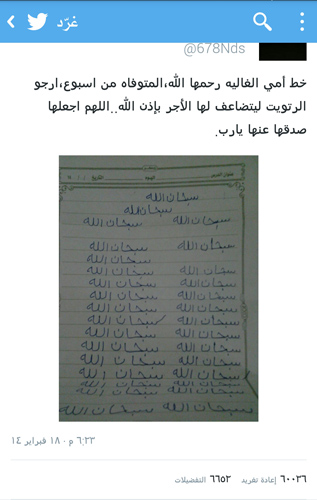 غرّد
@678Nds
خط أمي الغاليه رحمها الله،المتوفاه من اسبوع،ارجو
الرتويت ليتضاعف لها الأجر بإذن الله..اللهم اجعلها
صدقها عنها يارب.
سبحان الله
سبحان الله
سبحان الله سبحان الله
سبحان الله سبحان الله
سبحان الله
سبحان الله سبحان الله
سبحان الله سبحان الله
سبحان الله سبحان الله
سبحان الله سبحان الله
سبحان الله سبحان الله
سبحان الله سبحان الله
سبحان الله سبحان الله
سبحان الله سبحان الله
سبحان الله سبحان الله
سبحان الله سبحان الله
سبحان الله سبحان الله
٦:٢٣ م · ١٨ فبراير ١٤
٦٠٠٣٦ إعادة تغريد ٦٦٥٢ التفضيلات